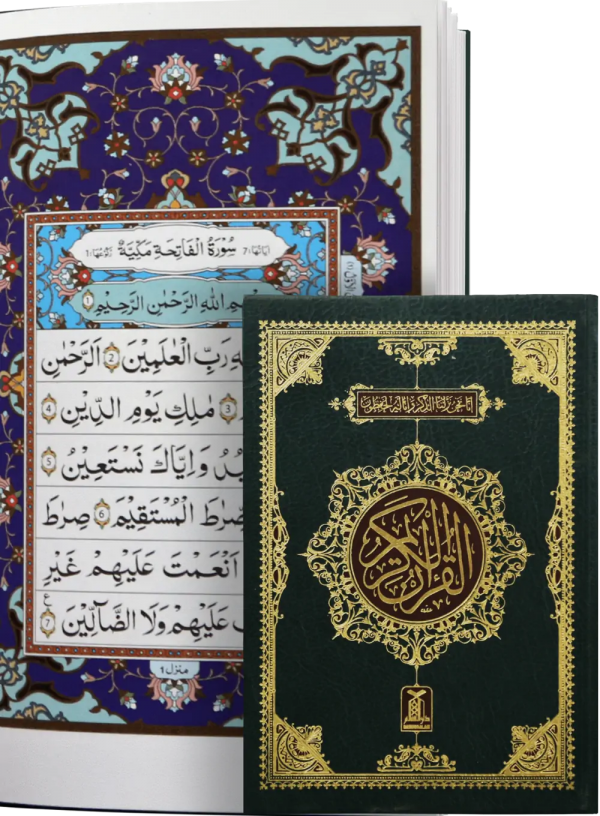 اٰيَاتُهَا 7 سُوْرَةُ الْفَاتِحَةِ مَكِّيَّةٌ رُكُوْعُهَا 1
اللهِ الرَّحْمٰنِ الرَّحِيْمِ 1
رَبِّ الْعٰلَمِيْنَ 2 الرَّحْمٰنِ
3 مٰلِكِ يَوْمِ الدِّيْنِ 4
وَاِيَّاكَ نَسْتَعِيْنُ 5
الْمُسْتَقِيْمَ 6 صِرٰطَ
اَنْعَمْتَ عَلَيْهِمْ غَيْرِ
عَلَيْهِمْ وَلَا الضَّآلِّيْنَ 7
ع
منزل ۱
انا نحن نزلنا الذكر وانا له لحفظون
القرآن الكريم